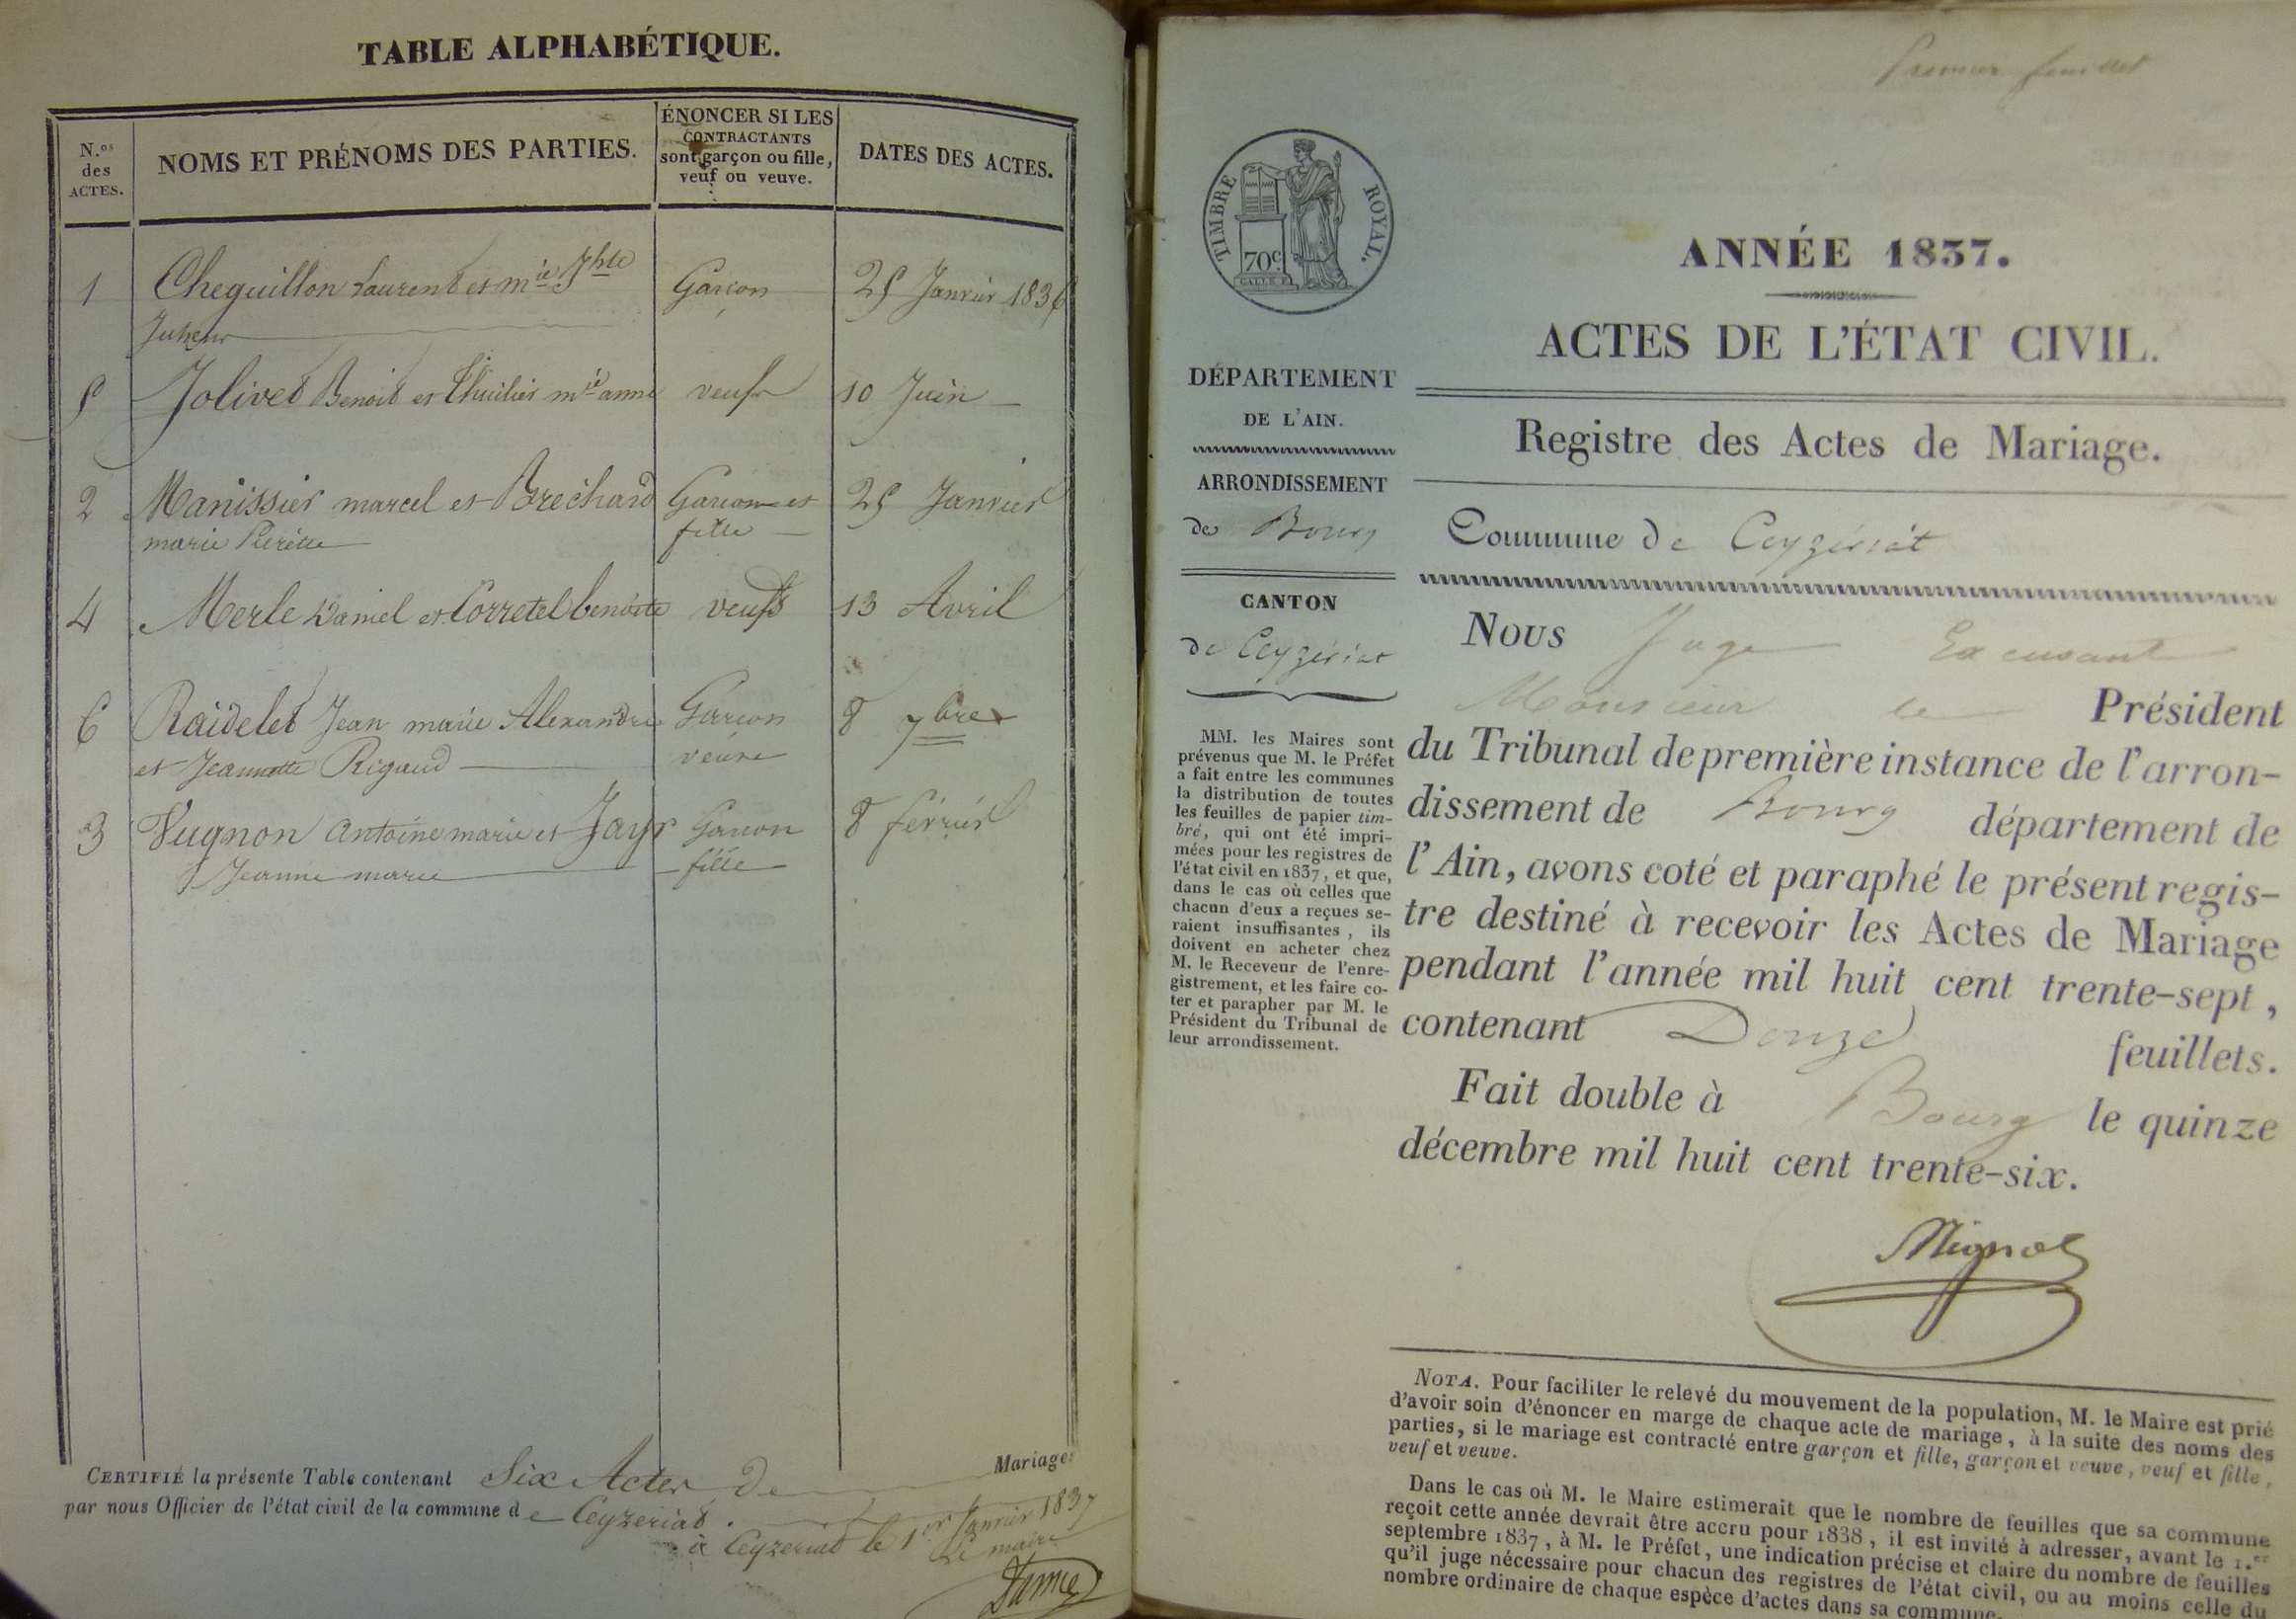 TABLE ALPHABÉTIQUE.
N.os des ACTES.
NOMS ET PRÉNOMS DES PARTIES.
ÉNONCER SI LES
CONTRACTANTS
sont garçon ou fille,
veuf ou veuve.
DATES DES ACTES.
1 Chequillon Laurent et mie Garçon 25 Janvier 1836
5 Jolivet Benoit et Thuilier mie anne veufs 10 Juin
2 Manissier marcel et Brechard Garcon et 25 Janvier
marie Pierrette fille
4 Merle Daniel et Corretel benoite veufs 13 Avril
6 Raidelet Jean marie Alexandre Garcon 8 7bre
et Jeannette Rigaud veuve
3 Vugnon antoine marie et Jayr Garcon 8 février
Jeanne marie fille
CERTIFIÉ la présente Table contenant Six Actes de Mariage
par nous Officier de l'état civil de la commune de Ceyzeriat.
à Ceyzeriat le 1er Janvier 1837
Le maire
Premier feuillet
TIMBRE ROYAL.
70c.
ANNÉE 1837.
ACTES DE L'ÉTAT CIVIL.
DÉPARTEMENT
DE L'AIN.
Registre des Actes de Mariage.
ARRONDISSEMENT
de Bourg
Commune de Ceyzériat
CANTON
de Ceyzériat
MM. les Maires sont
prévenus que M. le Préfet
a fait entre les communes
la distribution de toutes
les feuilles de papier tim-
bré, qui ont été impri-
mées pour les registres de
l'état civil en 1837, et que,
dans le cas où celles que
chacun d'eux a reçues se-
raient insuffisantes, ils
doivent en acheter chez
M. le Receveur de l'enre-
gistrement, et les faire co-
ter et parapher par M. le
Président du Tribunal de
leur arrondissement.
NOUS Juge Excusant
Monsieur le Président
du Tribunal de première instance de l'arron-
dissement de Bourg département de
l'Ain, avons coté et paraphé le présent regis-
tre destiné à recevoir les Actes de Mariage
pendant l'année mil huit cent trente-sept,
contenant Douze feuillets.
Fait double à Bourg le quinze
décembre mil huit cent trente-six.
NOTA. Pour faciliter le relevé du mouvement de la population, M. le Maire est prié
d'avoir soin d'énoncer en marge de chaque acte de mariage, à la suite des noms des
parties, si le mariage est contracté entre garçon et fille, garçon et veuve, veuf et fille,
veuf et veuve.
Dans le cas où M. le Maire estimerait que le nombre de feuilles que sa commune
reçoit cette année devrait être accru pour 1838, il est invité à adresser, avant le 1.er
septembre 1837, à M. le Préfet, une indication précise et claire du nombre de feuilles
qu'il juge nécessaire pour chacun des registres de l'état civil, ou au moins celle du
nombre ordinaire de chaque espèce d'actes dans sa commune.